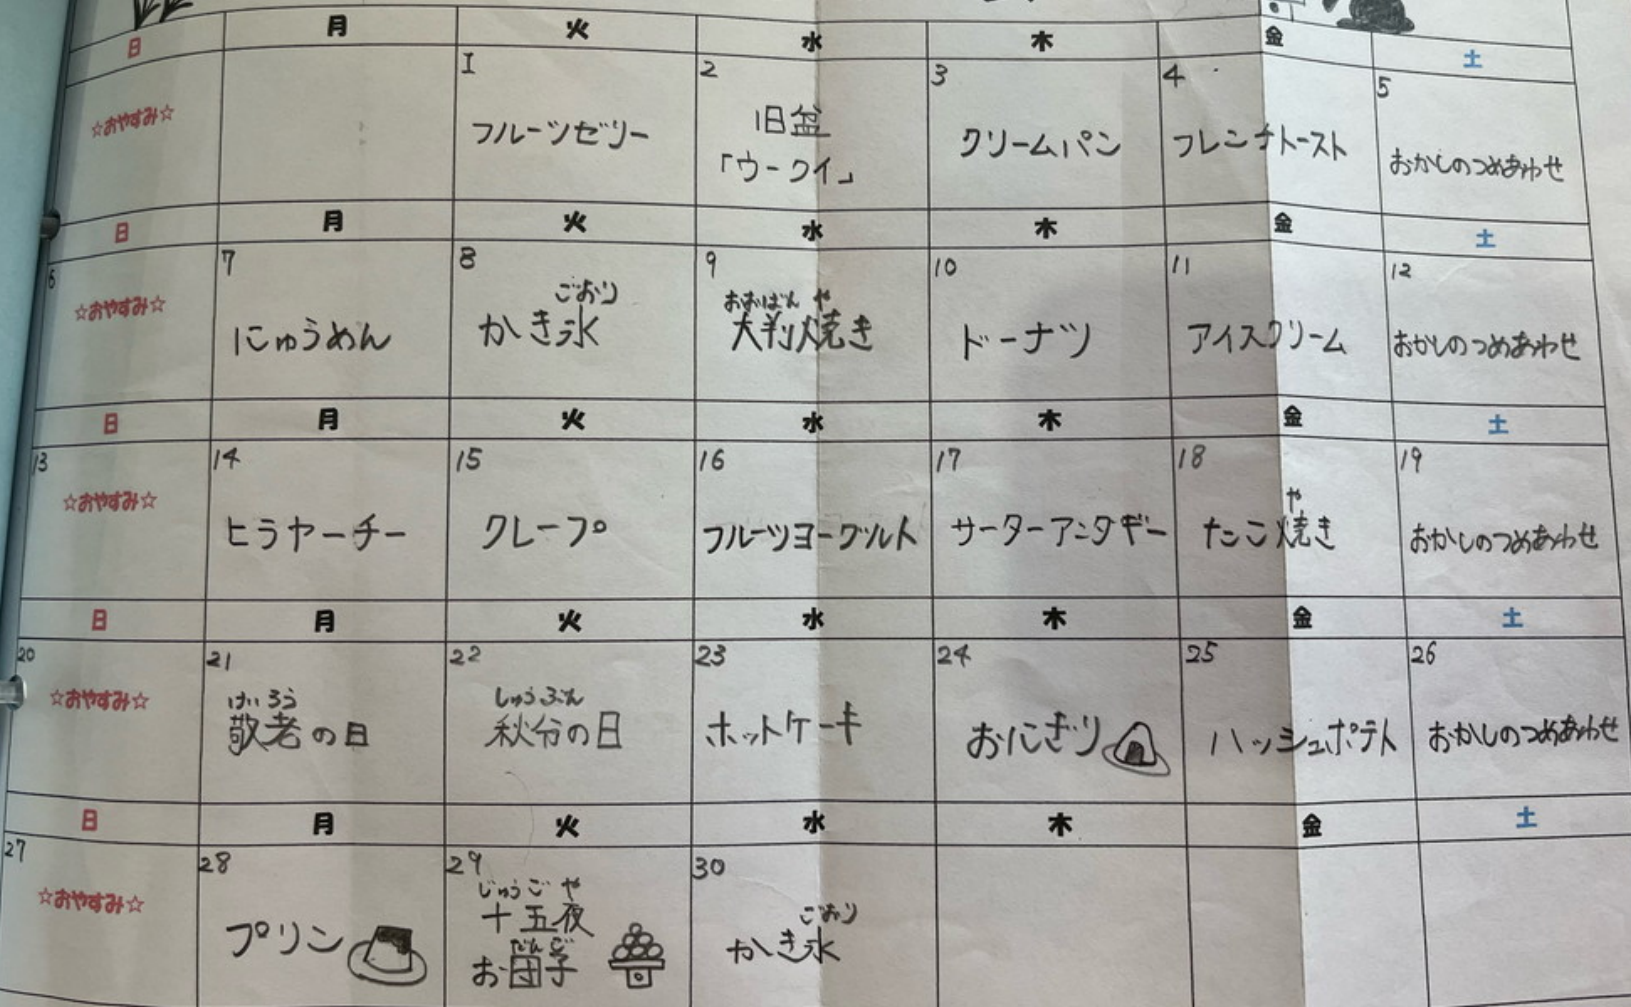 日 月 火 水 木 金 土
☆おやすみ☆
1 フルーツゼリー
2 旧盆
「ウークイ」
3 クリームパン
4 フレンチトースト
5 おかしのつめあわせ
日 月 火 水 木 金 土
6 ☆おやすみ☆
7 にゅうめん
8 ごおり
かき氷
9 おおばん や
大判焼き
10 ドーナツ
11 アイスクリーム
12 おかしのつめあわせ
日 月 火 水 木 金 土
13 ☆おやすみ☆
14 ヒラヤーチー
15 クレープ
16 フルーツヨーグルト
17 サーターアンダギー
18 や
たこ焼き
19 おかしのつめあわせ
日 月 火 水 木 金 土
20 ☆おやすみ☆
21 けいろう
敬老の日
22 しゅうぶん
秋分の日
23 ホットケーキ
24 おにぎり
25 ハッシュポテト
26 おかしのつめあわせ
日 月 火 水 木 金 土
27 ☆おやすみ☆
28 プリン
29 じゅうごや
十五夜
だんご
お団子
30 ごおり
かき氷